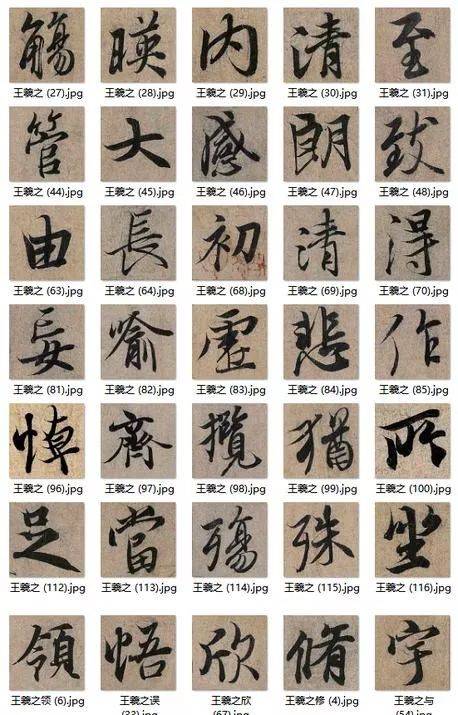 觴 暎 內 清 至
王羲之 (27).jpg 王羲之 (28).jpg 王羲之 (29).jpg 王羲之 (30).jpg 王羲之 (31).jpg
管 大 感 朗 致
王羲之 (44).jpg 王羲之 (45).jpg 王羲之 (46).jpg 王羲之 (47).jpg 王羲之 (48).jpg
由 長 初 清 得
王羲之 (63).jpg 王羲之 (64).jpg 王羲之 (68).jpg 王羲之 (69).jpg 王羲之 (70).jpg
妄 喻 虛 悲 作
王羲之 (81).jpg 王羲之 (82).jpg 王羲之 (83).jpg 王羲之 (84).jpg 王羲之 (85).jpg
悼 齊 攬 猶 所
王羲之 (96).jpg 王羲之 (97).jpg 王羲之 (98).jpg 王羲之 (99).jpg 王羲之 (100).jpg
足 當 殤 殊 坐
王羲之 (112).jpg 王羲之 (113).jpg 王羲之 (114).jpg 王羲之 (115).jpg 王羲之 (116).jpg
領 悟 欣 脩 宇
王羲之领 (6).jpg 王羲之误 王羲之欣 王羲之修 (4).jpg 王羲之与